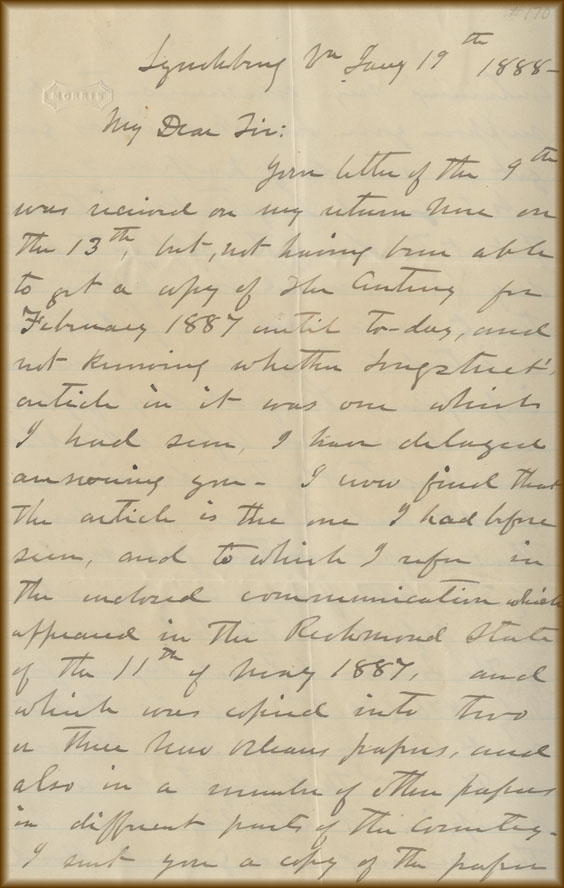 #170
Lynchburg Va Jany 19th 1888-
MORRIS
My Dear Sir:
Your letter of the 9th
was received on my return here on
the 13th, but, not having been able
to get a copy of The Century for
February 1887 until to-day, and
not knowing whether Longstreet's
article in it was one which
I had seen, I have delayed
answering you- I now find that
the article is the one I had before
seen, and to which I refer in
the enclosed communication which
appeared in the Richmond State
of the 11th of May 1887, and
which was copied into two
or three New Orleans papers, and
also in a number of other papers
in different parts of the country-
I sent you a copy of the paper